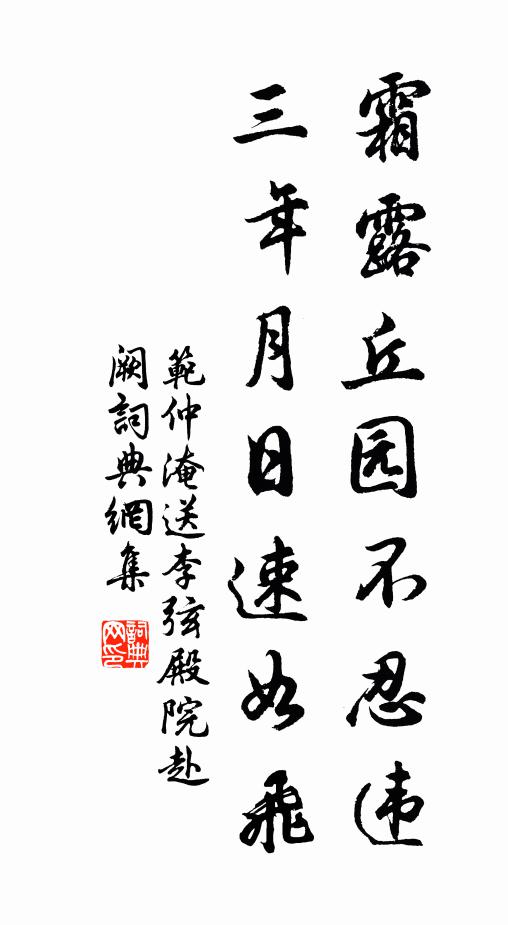 霜露丘园不忍违
三年月日速如飛
範仲淹送李弦殿院赴
阙詞典網集
詞典
网印